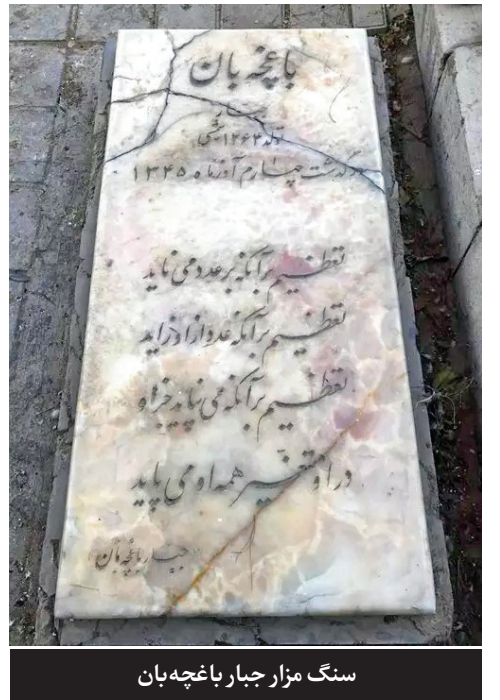 باغچه‌بان
جبار
تولد ۱۲۶۴ شمسی
درگذشت چهارم آذرماه ۱۳۴۵
تعظیم بر آنکه بر عدد می‌ناید
تعظیم بر آنکه عدد از او زاید
تعظیم بر آنکه می‌نپاید جز او
در او تغییر همه او می‌پاید
جبار باغچه‌بان
سنگ مزار جبار باغچه‌بان